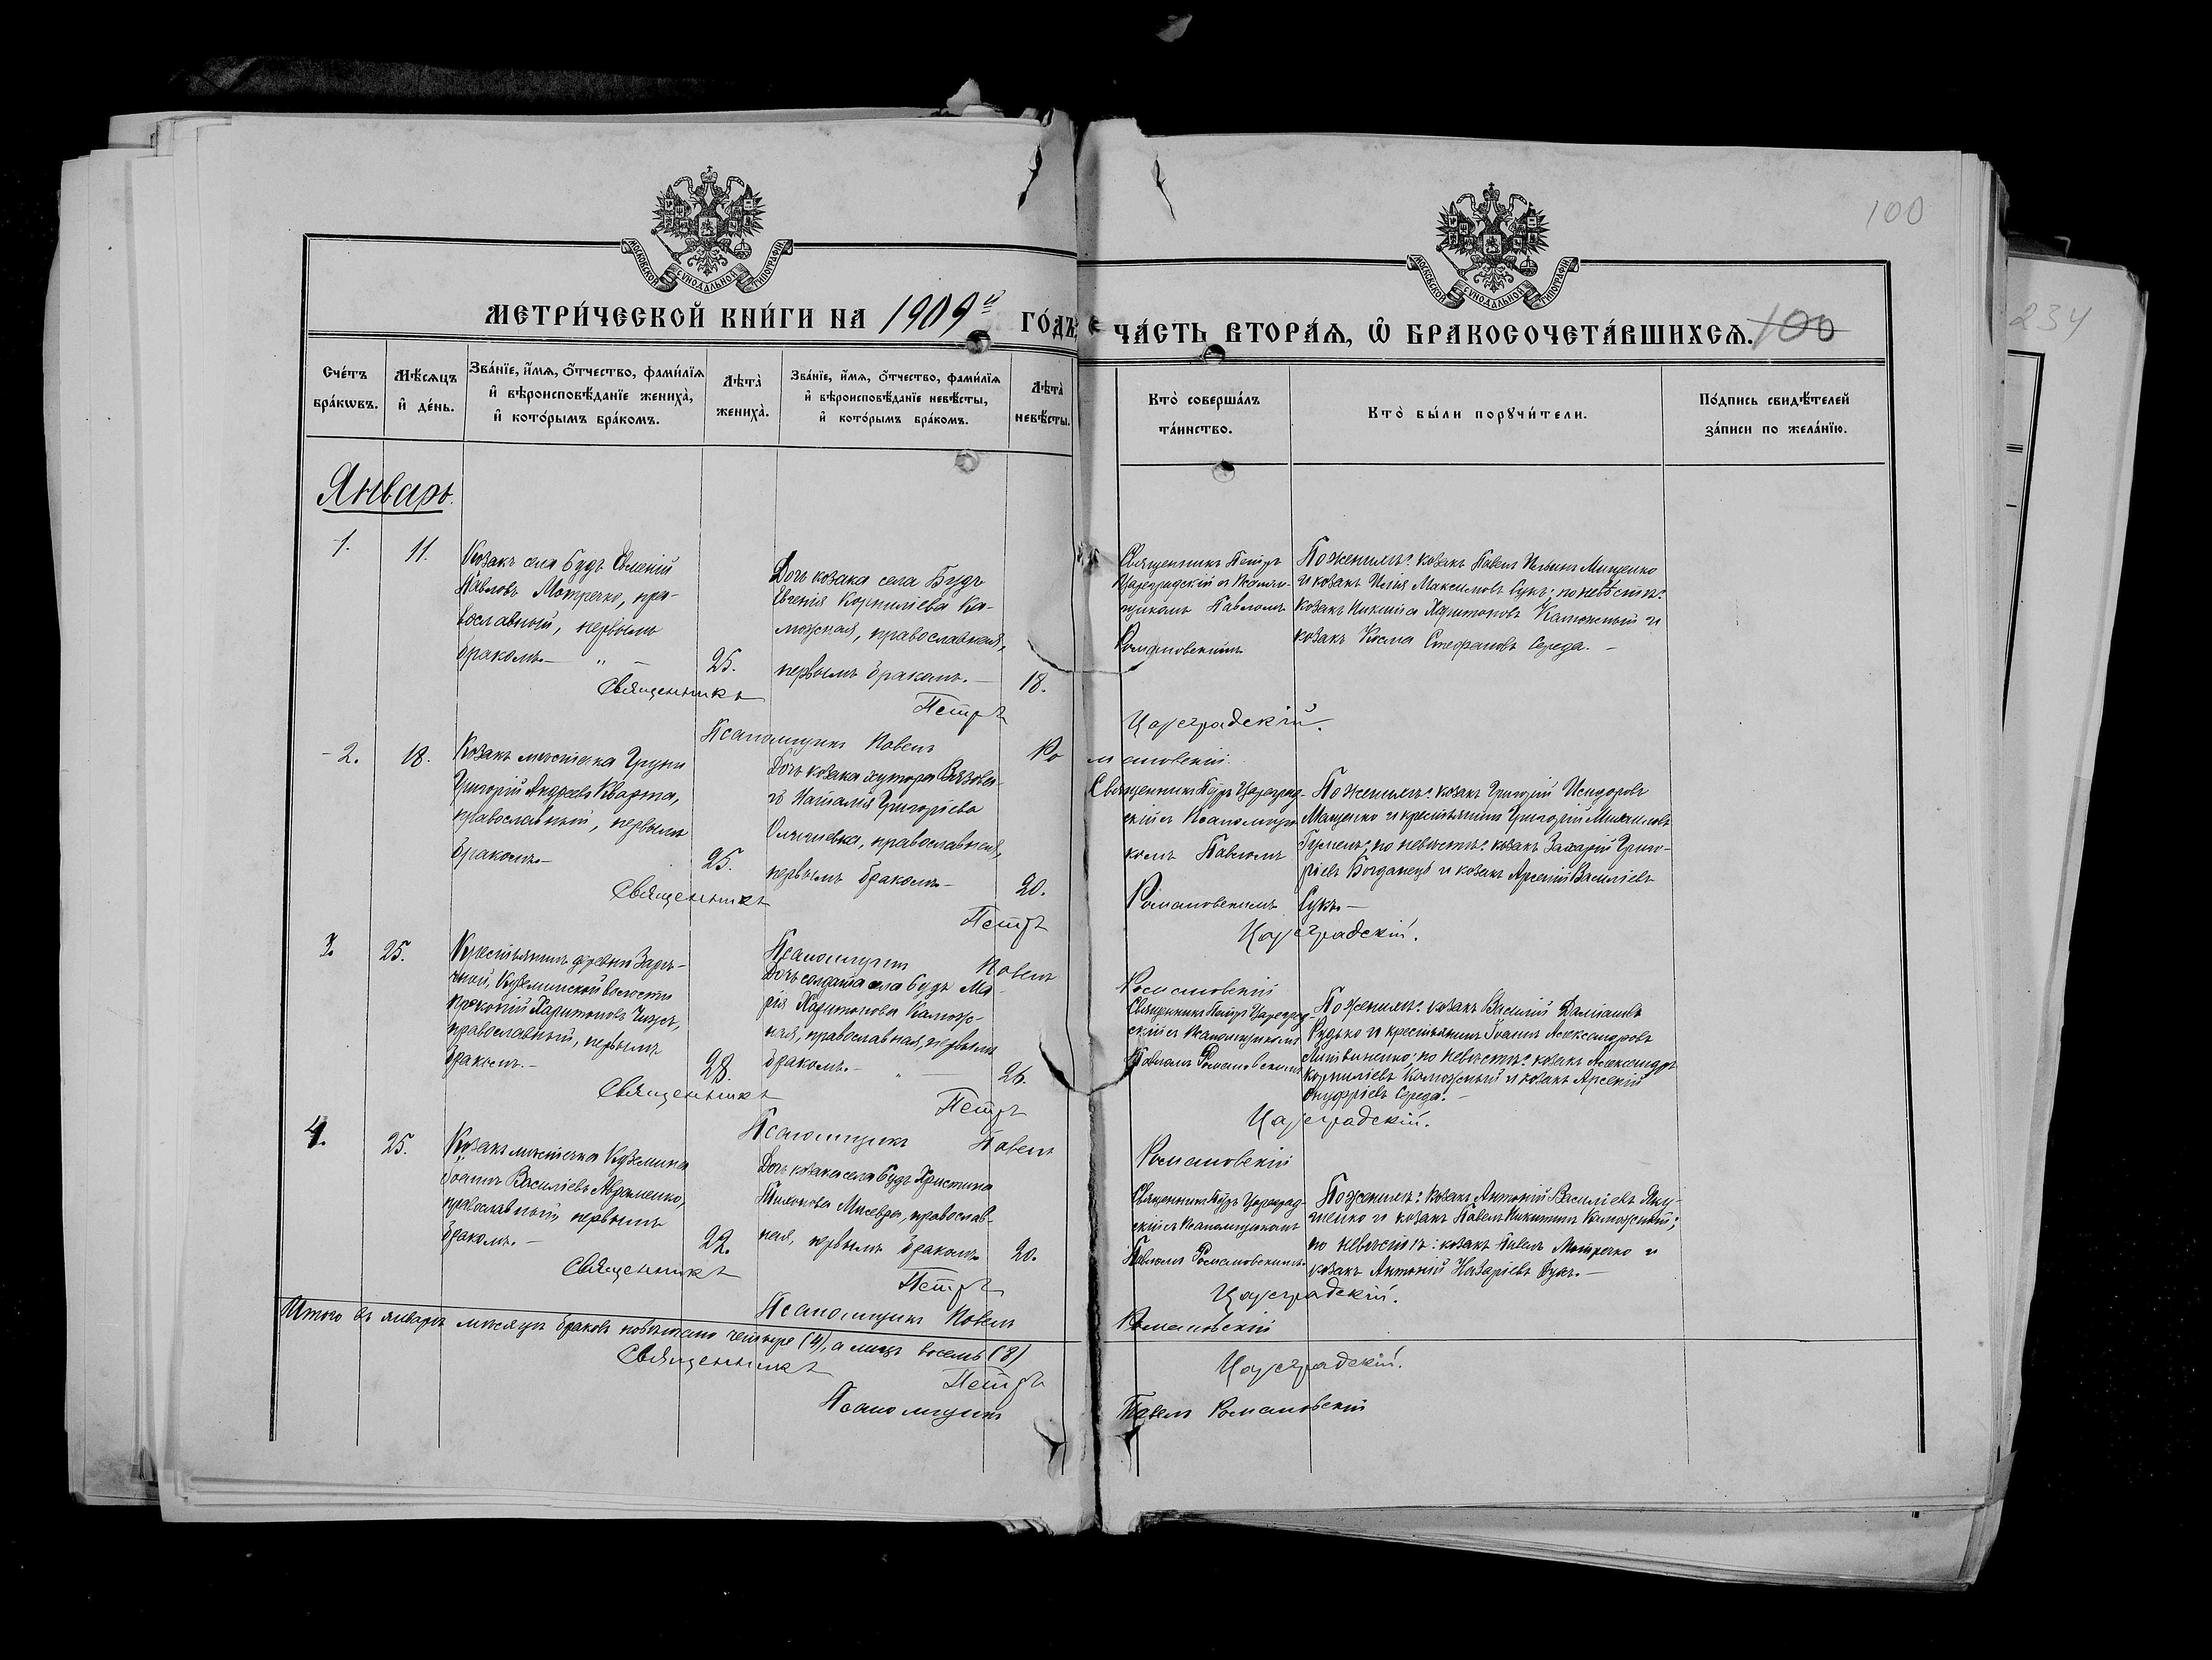 100
МОСКОВСКОЙ СѴНОДАЛЬНОЙ ТИПОГРАФІИ
МОСКОВСКОЙ СѴНОДАЛЬНОЙ ТИПОГРАФІИ
МЕТРИ́ЧЕСКОЙ КНИ́ГИ НА 1909й ГО́ДЪ,
ЧА́СТЬ ВТОРА́Ѧ, Ѡ҆ БРАКОСОЧЕТА́ВШИХСѦ. 100
234
Сче́тъ бра́кѡвъ.
Мѣ́сѧцъ и҆ де́нь.
Зва́нїе, и҆́мѧ, ѻ҆́тчество, фамилїѧ
и҆ вѣроисповѣ́данїе жениха̀,
и҆ кото́рымъ бра́комъ.
Лѣта̀
жениха̀.
Зва́нїе, и҆́мѧ, ѻ҆́тчество, фамилїѧ
и҆ вѣроисповѣ́данїе невѣ́сты,
и҆ кото́рымъ бра́комъ.
Лѣта̀
невѣ́сты.
Кто̀ соверша́лъ
та́инство.
Кто̀ бы́ли порꙋчи́тели.
По́дпись свидѣ́телей
за́писи по жела́нїю.
Январь.
1.
11.
Козакъ села Будъ
Павловъ Мотречко, пра-
вославный, первымъ
бракомъ.— " —
25.
Дочь козака села Будъ
Евгенія Корниліева Ка-
можная, православная,
первымъ бракомъ.—
18.
Священникъ Петръ
Цареградскій съ Псалом-
щикомъ Павломъ
Романовскимъ
По женихѣ: козакъ Павелъ Мищенко
и козакъ Илія Максимовъ Сукъ; по невѣстѣ:
козакъ Никита Харитоновъ Каможный и
козакъ Косма Стефановъ Середа.—
Священникъ Петръ Цареградскій.
Псаломщикъ Павелъ Романовскій.
2.
18.
Козакъ мѣстечка Груни
Григорій Андреевъ Кварта,
православный, первымъ
бракомъ.—
25.
Дочь козака хутора Вязова-
го Наталія Григоріева
православная,
первымъ бракомъ.—
20.
Священникъ Петръ Цареград-
скій съ Псаломщи-
комъ Павломъ
Романовскимъ
По женихѣ: козакъ Григорій Исидоровъ
Мащенко и крестьянинъ Григорій Михаиловъ
по невѣстѣ: козакъ Захарій Григо-
ріевъ Богданецъ и козакъ Арсеній Василіевъ
Сукъ.—
Священникъ Петръ Цареградскій.
Псаломщикъ Павелъ Романовскій
3.
25.
Крестьянинъ деревни Зарѣ-
чной, Куземинской волости
Прокопій Харитоновъ Чижъ,
православный, первымъ
бракомъ.—
28.
Дочь солдата села Будъ Ма-
рія Харитонова Камож-
ная, православная, первымъ
бракомъ.—
26.
Священникъ Петръ Цареград-
скій съ Псаломщикомъ
Павломъ Романовскимъ
По женихѣ: козакъ Василій Даміановъ
Рудько и крестьянинъ Іоаннъ Александровъ
Литвиненко; по невѣстѣ: козакъ Александръ
Корниліевъ Каможный и козакъ Арсеній
Онуфріевъ Середа.—
Священникъ Петръ Цареградскій.
Псаломщикъ Павелъ Романовскій
4.
25.
Козакъ мѣстечка Куземина
Іоаннъ Василіевъ Авраменко,
православный, первымъ
бракомъ.—
22.
Дочь козака села Будъ Христина
Тихонова Мисевра, православ-
ная, первымъ бракомъ
20.
Священникъ Петръ Цареград-
скій съ Псаломщикомъ
Павломъ Романовскимъ.
По женихѣ: козакъ Антоній Василіевъ Яку-
шенко и козакъ Павелъ Никитинъ Каможный;
по невѣстѣ: козакъ Павелъ Мотречко и
козакъ Антоній Назаріевъ Сукъ.—
Священникъ Петръ Цареградскій.
Псаломщикъ Павелъ Романовскій
Итого въ январѣ мѣсяцѣ браковъ повѣнчано четыре (4), а лицъ восемь (8)
Священникъ Петръ Цареградскій.
Псаломщикъ Павелъ Романовскій